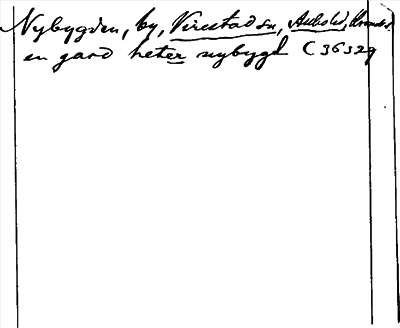 Nybygden, by, Virestad sn, Allbo hd, Kronob.
en gård heter nybygd C 36329